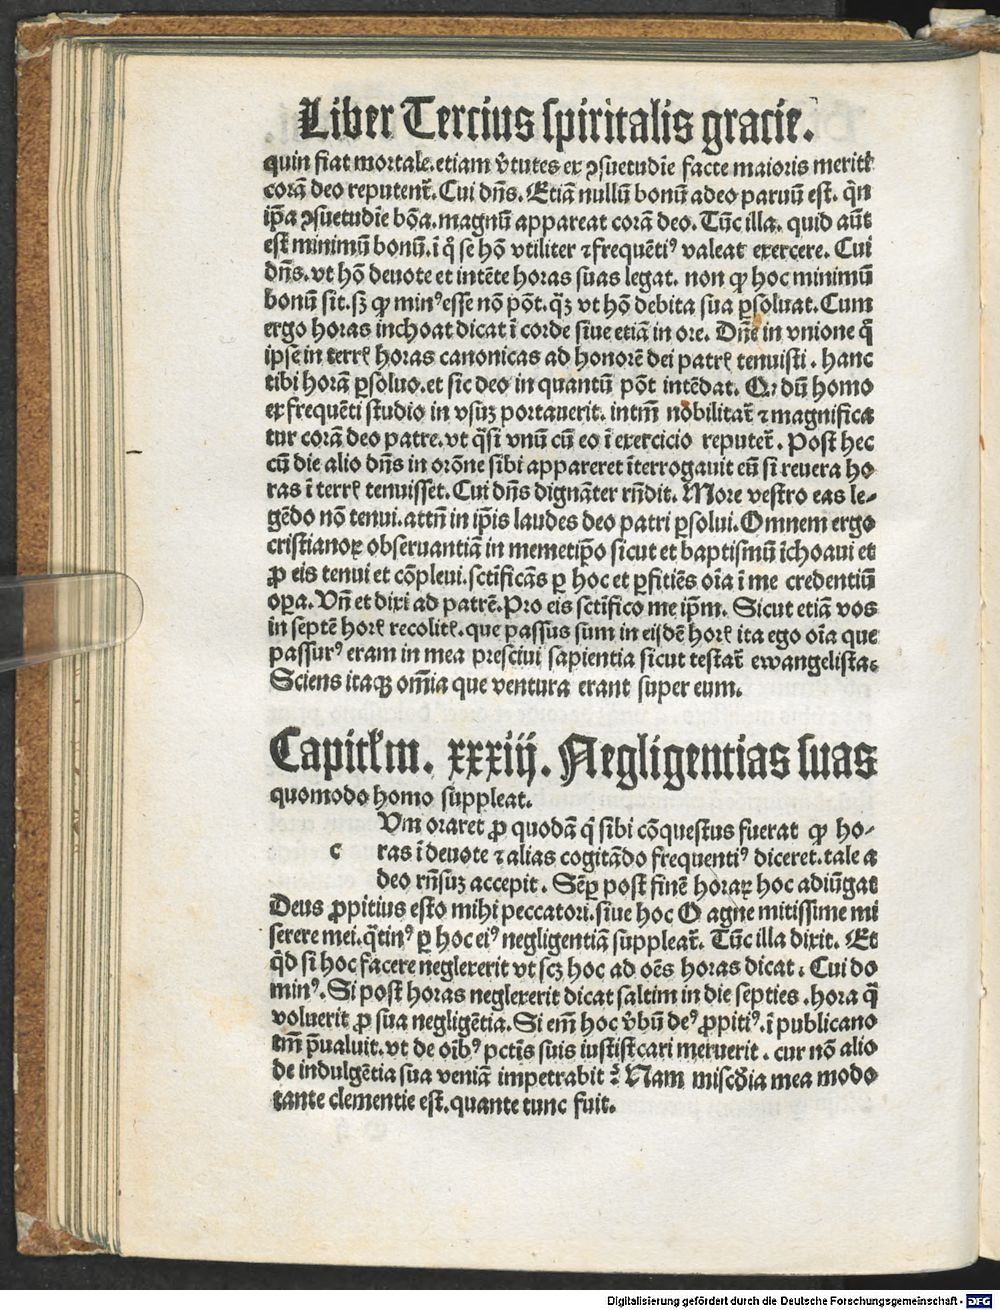 Liber Tercius spiritalis gracie.
quin fiat mortale. etiam v̄tutes ex ꝯsuetudīe facte maioris meritꝭ
corā deo reputent̄. Cui dn̄s. Etiā nullū bonū adeo paruū est. qn̄
ip̄a ꝯsuetudīe bōa. magnū appareat corā deo. Tūc illa. quid aūt
est minimū bonū. ī q̊ se hō vtiliter ⁊ frequētiꝰ valeat exercere. Cui
dn̄s. vt hō deuote et intēte horas suas legat. non ꝙ hoc minimū
bonū sit. sꝫ ꝙ minꝰ esse nō pōt. qꝫ vt hō debita sua ꝑsoluat. Cum
ergo horas inchoat dicat ī corde siue etiā in ore. Dn̄e in vnione q̄
ipse in terrꝭ horas canonicas ad honorē dei patrꝭ tenuisti. hanc
tibi horā ꝑsoluo. et sic deo in quantū pōt intēdat. Q; dū homo
ex frequēti studio in vsuꝫ portauerit. intm̄ nobilitat̄ ⁊ magnifica
tur corā deo patre. vt q̄si vnū cū eo ī exercicio reputet̄. Post hec
cū die alio dn̄s in orōne sibi appareret īterrogauit eū si reuera ho-
ras ī terrꝭ tenuisset. Cui dn̄s dignāter rn̄dit. More vestro eas le-
gēdo nō tenui. attn̄ in ip̄is laudes deo patri ꝑsolui. Omnem ergo
cristianoꝝ obseruantiā in memetip̄o sicut et baptismū īchoaui et
ꝓ eis tenui et cōpleui. sctīficās ꝑ hoc et ꝑfitiēs oīa ī me credentiū
oꝑa. Vn̄ et dixi ad patrē. Pro eis sctīfico me ip̄m. Sicut etiā vos
in septē horꝭ recolitꝭ. que passus sum in eisdē horꝭ ita ego oīa que
passurꝰ eram in mea presciui sapientia sicut testat̄ ewangelista.
Sciens itaqꝫ om̄ia que ventura erant super eum.
Capitl̓m. xxxiij. Negligentias suas
quomodo homo suppleat.
Vm oraret ꝓ quodā q̇ sibi cōquestus fuerat ꝙ ho-
c ras ī deuote ⁊ alias cogitādo frequentiꝰ diceret. tale a
deo rn̄suꝫ accepit. Sēꝑ post finē horaꝝ hoc adiūgat
Deus ꝓpitius esto mihi peccatori. siue hoc O agne mitissime mi
serere mei. q̄tinꝰ ꝑ hoc eiꝰ negligentiā suppleat̄. Tūc illa dixit. Et
qd̄ si hoc facere neglexerit vt scꝫ hoc ad oēs horas dicat. Cui do
minꝰ. Si post horas neglexerit dicat saltim in die septies. hora q̄
voluerit ꝓ sua negligētia. Si em̄ hoc v̄bū deꝰ ꝓpitiꝰ. ī publicano
tm̄ p̄ualuit. vt de oībꝰ pctīs suis iustificari meruerit. cur nō alio
de indulgētia sua veniā impetrabit? Nam misc̄dia mea modo
tante clementie est. quante tunc fuit.
Digitalisierung gefördert durch die Deutsche Forschungsgemeinschaft - DFG